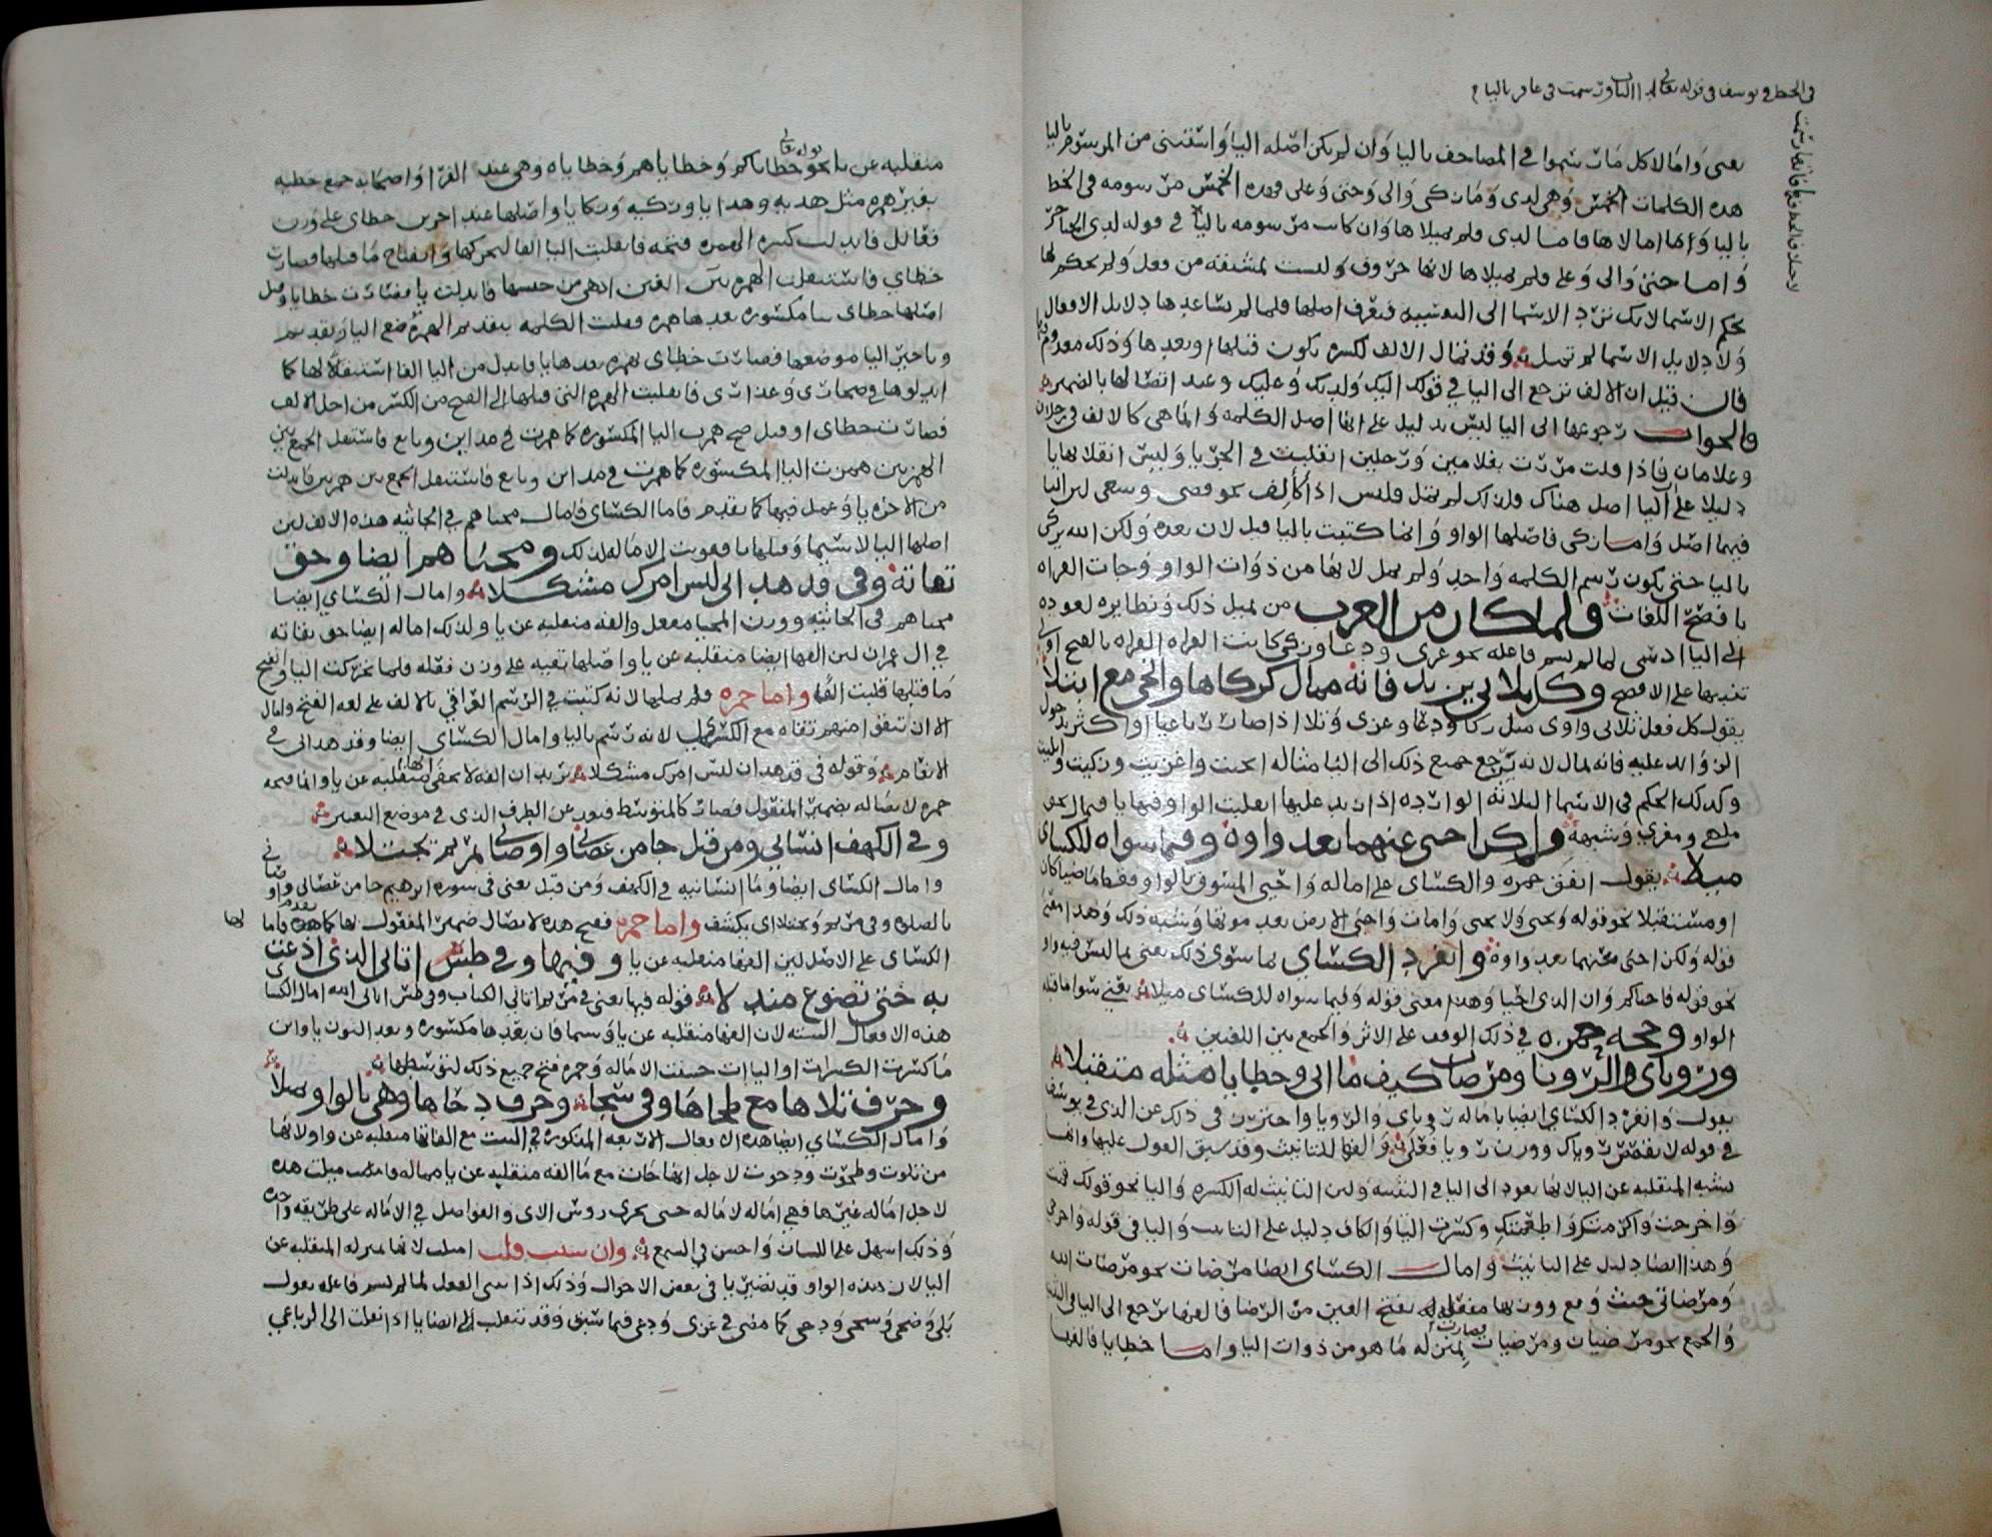 في الخط في يوسف في قوله تعالى لدا الباب ورسمت في غافر بالياء
يعنى واما لا كل ما رسموا في المصاحف باليا وان لم يكن اصله اليا واستثنى من المرسوم باليا
هذه الكلمات الخمس وهي لدى وما زكى والى وحتى وعلى فهذه الخمس مرسومه في الخط
باليا وانما امالاها فاما لدى فلم يميلاها وان كانت مرسومه باليا في قوله لدى الحناجر
واما حتى والى وعلى فلم يميلاها لانها حروف وليست بمشتقه من فعل ولم يحكم لها
بحكم الاسما لانك ترد الاسما الى التثنيه فتعرف اصلها فلما لم تساعدها دلايل الافعال
ولا دلايل الاسما لم تمل وقد تمال الالف لكسره تكون قبلها او بعدها وذلك معدوم
فان قيل ان الالف ترجع الى اليا في قولك اليك ولديك وعليك وعند اتصالها بالضمير
فالجواب رجوعها الى اليا ليس بدليل على انها اصل الكلمه وانما هي كالالف في رجلان
وغلامان فاذا قلت مررت بغلامين ورجلين انقلبت في الجر يا وليس انقلابها يا
دليلا على اليا اصل هناك فلذلك لم تمل وليس اذا كالف نحو قضى وسعى لان اليا
فيها اصل واما زكى فاصلها الواو وانما كتبت باليا قبل لان بعده ولكن الله يزكى
باليا حتى يكون رسم الكلمه واحد ولم يمل لانها من ذوات الواو وجات القراه
بافصح اللغات فلما كان من العرب من يميل ذلك ونظايره لعوده
الى اليا اذ بنى لما لم يسم فاعله نحو غزى ودعى وزكى كانت القراه بالفتح اولى
تنبيها على الافصح وكل ثلاثي يزيد فانه ممال كزكاها وانجى مع ابتلا
يقول كل فعل ثلاثي واوى مثل زكا ودعا وغزى وتلا اذا صار رباعيا او اكثر بدخول
الزوايد عليه فانه يمال لانه يرجع جميع ذلك الى اليا مثاله انجيت واغزيت وزكيت وابليت
وكذلك الحكم في الاسما الثلاثه الوارده اذا زيد عليها انقلبت الواو فيها يا فيمال نحو
ملهى ومغزى وشبهه ولكن احيى عنهما بعد واوه وفيما سواه للكساى
ميلا يقول اتفق حمزه والكساى على اماله واحيى المسوق بالواو وفقا ماضيا كان
او مستقبلا نحو قوله ونحيى ولا يحيى وامات واحيى الارض بعد موتها وشبه ذلك وهذا معنى
قوله ولكن احيى عنهما بعد واوه وانفرد الكساى بما سوى ذلك يعنى بما ليس فيه واو
نحو قوله فاحياكم وان الذى احيا وهذا معنى قوله وفيما سواه للكساى ميلا يعنى سوا ما قبله
الواو وحجه حمزه في ذلك الوقف على الاثر والجمع بين اللغتين
ورؤياى والرؤيا ومرضات كيف ما اتى وخطايا مثله متقبلا
يقول وانفرد الكساى ايضا باماله رؤياى والرؤيا واحترز في ذلك عن الذى في يوسف
في قوله لا تقصص رؤياك ووزن رؤيا فعلى والفها للتانيث وقد سبق القول عليها وانها
تشبه المنقلبه عن اليا لانها تعود الى اليا في التثنيه ولان التانيث له الكسره واليا نحو قولك قمت
واخرجت واكرمتك واطعمتك وكسرت التا والكاف دليل على التانيث واليا في قوله واخرجي
وهذا ايضا دليل على التانيث وامال الكساى ايضا مرضات نحو مرضات الله
ومرضاتى حيث وقع ووزنها مفعله بفتح العين من الرضا فالفها ترجع الى اليا في التثنيه
والجمع نحو مرضيان ومرضيات فصارت بمنزله ما هو من ذوات اليا واما خطايا فالفها
منقلبه عن يا نحو قوله تعالى خطاياكم وخطاياهم وخطاياه وهي عند الفرا واصحابه جمع خطيه
بغير همز مثل هديه وهدايا وزكيه وزكايا واصلها عند اخرين خطاى على وزن
فعائل فابدلت كسره الهمزه فتحه فانقلبت اليا الفا لتحركها وانفتاح ما قبلها فصارت
خطاى فاستثقلت الهمزه بين الفين اذ هي من جنسها فابدلت يا فصارت خطايا وقيل
اصلها خطاى بيا مكسوره بعدها همزه فقلبت الكلمه بتقديم الهمزه موضع اليا وتقديم
وتاخير اليا موضعها فصارت خطاى بهمزه بعدها يا فابدل من اليا الفا استثقالا لها كما
ابدلوها في صحارى وعذارى فانقلبت الهمزه التي قبلها الى الفتح من الكسر من اجل الالف
فصارت خطاى او قيل صح همزت اليا المكسوره كما همزت في مداين وبايع فاستثقل الجمع بين
الهمزتين همزت اليا المكسوره كما همزت في مداين وبايع فاستثقل الجمع بين همزتين فابدلت
من الاخره يا وعمل فيها كما تقدم فاما الكساى فامال محياهم في الجاثيه هذه الالف لان
اصلها اليا لا سيما وقبلها يا فقويت الاماله لذلك ومحياهم ايضا وحق
تقاته وفي قد هدانى ليس امرك مشكلا وامال الكساى ايضا
محياهم في الجاثيه ووزن المحيا مفعل والفه منقلبه عن يا ولذلك اماله ايضا حق تقاته
في ال عمران لان الفها ايضا منقلبه عن يا واصلها تقيه على وزن فعله فلما تحركت اليا وانفتح
ما قبلها قلبت الفا واما حمزه فلم يملها لانه كتبت في الرسم العراقي بالالف على لغه الفتح وامال
الا ان تتقوا منهم تقاه مع الكساى لانه رسم باليا وامال الكساى ايضا وقد هدانى في
الانعام وقوله في قد هدان ليس امرك مشكلا يريد ان الفه لا يخفى انها منقلبه عن يا وانما فتحه
حمزه لاتصاله بضمير المفعول فصارت كالمتوسط فبعد عن الطرف الذى في موضع التغيير
وفي الكهف انسانى ومن قبل جا من عصانى واوصانى بمريم يجتلا
وامال الكساى ايضا وما انسانيه في الكهف ومن قبل يعنى في سوره ابرهيم جا من عصانى واوصانى
بالصلوه وفي مريم ويجتلا اى يكشف واما حمزه ففتح هذه لاتصال ضمير المفعول بها كما تقدم فاما
الكساى على الاصل لان الفها منقلبه عن يا وفيها وفي طس اتانى الذى اذعت
به حتى تضوع مندلا قوله فيها يعنى في مريم اتانى الكتاب وفي طس اتانى الله امال الكساى
هذه الافعال السته لان الفها منقلبه عن يا ورسما فان بعدها مكسوره وبعد النون يا وان
ما كثرت الكسرات او اليات حسنت الاماله وحمزه فتح جميع ذلك لتوسطها
وحرف تلاها مع طحاها وفي سجى وحرف دحاها وهي بالواو تبتلا
وامال الكساى ايضا هذه الافعال الاربعه المذكوره في البيت مع الفاتها منقلبه عن واو لانها
من تلوت وطحوت ودحوت لاجل انها جات مع ما الفه منقلبه عن يا مماله فاميلت هذه
لاجل اماله غيرها فهي اماله لاماله حتى يجرى روس الاى والفواصل في الاماله على طريقه واحده
وذلك اسهل على اللسان واحسن في السمع وان شيت قلت اميلت لانها بمنزله المنقلبه عن
اليا لان هذه الواو قد تصير يا في بعض الاحوال وذلك اذا بنى الفعل لما لم يسم فاعله تقول
تلى وضحى وسجى ودحى كما مضى في غزى ودعى فيما سبق وقد تنقلب الى ايضا يا اذا نقلت الى الرباعي